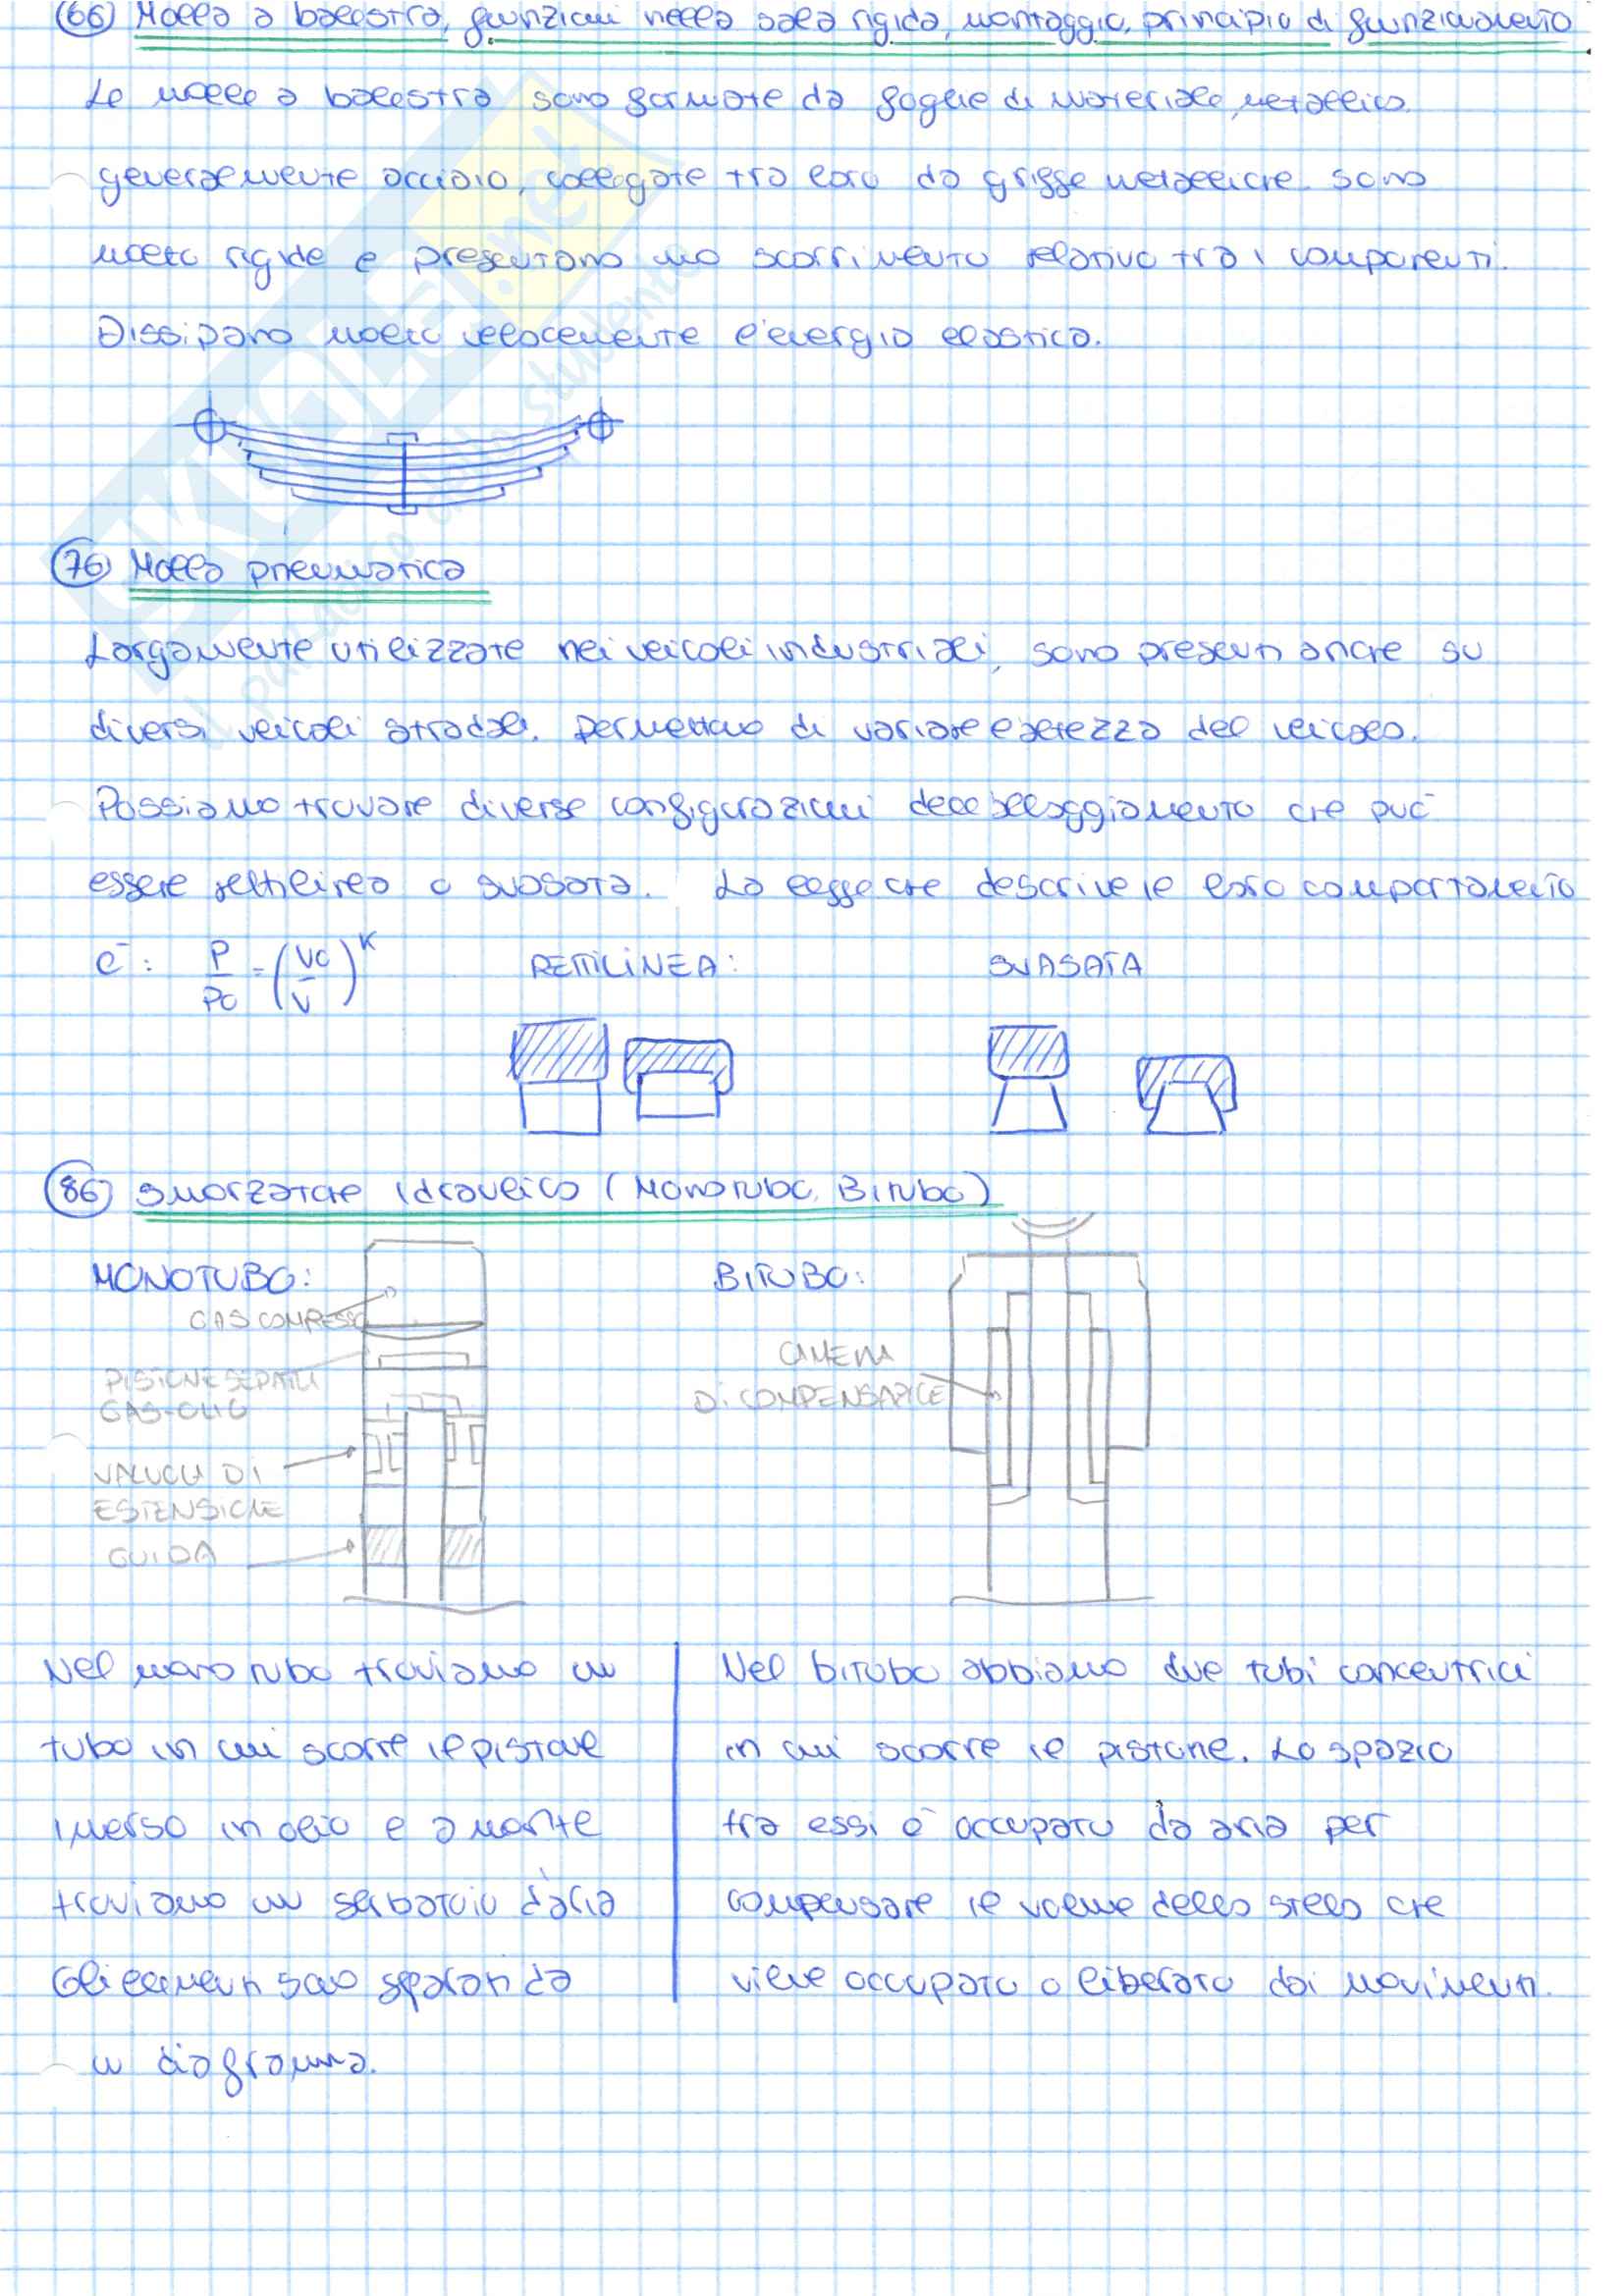 66 Molla a balestra, funzioni nella sala rigida, montaggio, principio di funzionamento
Le molle a balestra sono formate da foglie di materiale metallico
generalmente acciaio, collegate tra loro da griffe metalliche. sono
molto rigide e presentano uno scorrimento relativo tra i componenti.
Dissipano molto velocemente l'energia elastica.
76 Molla pneumatica
Largamente utilizzate nei veicoli industriali, sono presenti anche su
diversi veicoli stradali. Permettono di variare l'altezza del veicolo.
Possiamo trovare diverse configurazioni dell'alloggiamento che può
essere rettilinea o svasata. La legge che descrive il loro comportamento
è: P/P0 = (V0/V)^K
RETTILINEA: SVASATA
86 Smorzatore idraulico (Monotubo, Bitubo)
MONOTUBO: BITUBO:
GAS COMPRESSO
PISTONE SEPARA
GAS-OLIO
VALVOLA DI
ESTENSIONE
GUIDA
CAMERA
DI COMPENSAZIONE
Nel mono tubo troviamo un
tubo in cui scorre il pistone
imerso in olio e a monte
troviamo un serbatoio d'aria
Gli elementi sono separati da
un diaframma.
Nel bitubo abbiamo due tubi concentrici
in cui scorre il pistone. Lo spazio
tra essi è occupato da aria per
compensare il volume dello stelo che
viene occupato o liberato dai movimenti.
SKUOLA.net